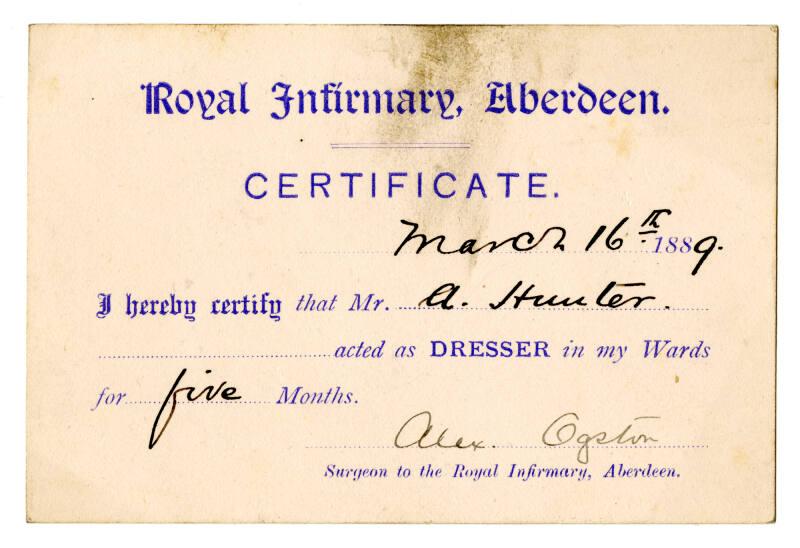 Royal Infirmary, Aberdeen.
CERTIFICATE.
March 16th 1889.
I hereby certify that Mr. A. Hunter.
acted as DRESSER in my Wards
for five Months.
Alex. Ogston
Surgeon to the Royal Infirmary, Aberdeen.